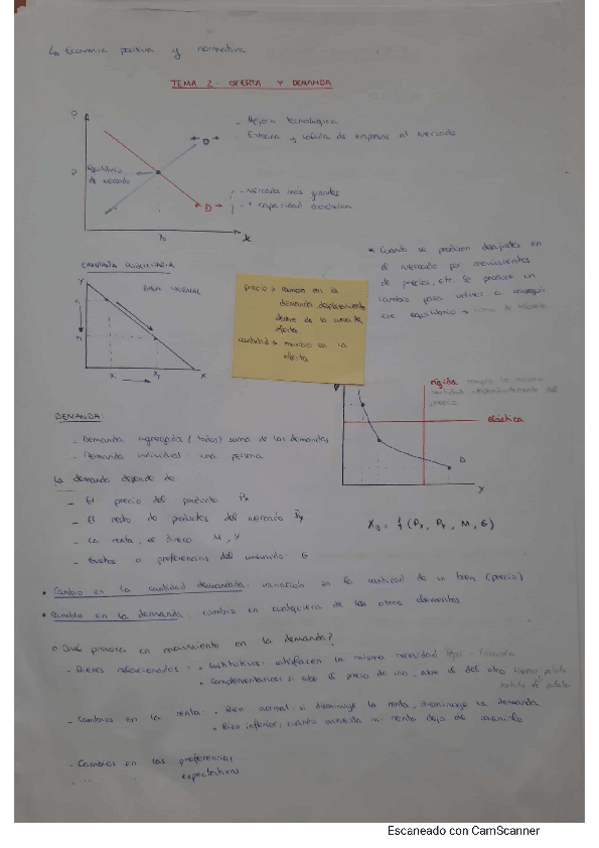 ↳ Economía positiva y normativa
TEMA 2. OFERTA Y DEMANDA
- Mejora tecnológica
- Entrada y salida de empresas al mercado
Equilibrio
de mercado
- Mercados más grandes
- + capacidad
D
X₀
BIEN NORMAL
Y
X₁ X₂ X
* Cuando se producen desajustes en
el mercado por movimientos
de precios, etc. Se produce un
cambio para volver a conseguir
ese equilibrio →
precio → cambio en la
demanda desplazamiento
dentro de la curva de
oferta
cantidad → cambio en la
oferta
rígida
precio
elástica
D
Y
DEMANDA:
- Demanda agregada (todos) suma de las demandas
- Demanda individual: una persona
La demanda depende de
- El precio del producto Px
- El resto de productos del mercado Py
- La renta, el dinero M, Y
- Gustos o preferencias del consumidor G
X₀ = f (Px, Py, M, G)
• Cambio en la cantidad demandada: variación en la cantidad de un bien (precio)
• Cambio en la demanda: cambio en cualquiera de los otros elementos
○ Qué provoca un movimiento en la demanda?
- Bienes relacionados: • Sustitutivos: satisfacen la misma necesidad
• Complementarios: si sube el precio de uno, sube el del otro
- Cambios en la renta: • Bien normal: si disminuye la renta, disminuye la demanda
• Bien inferior: cuando aumenta mi renta dejo de
- Cambios en las preferencias
- " " expectativas
Escaneado con CamScanner